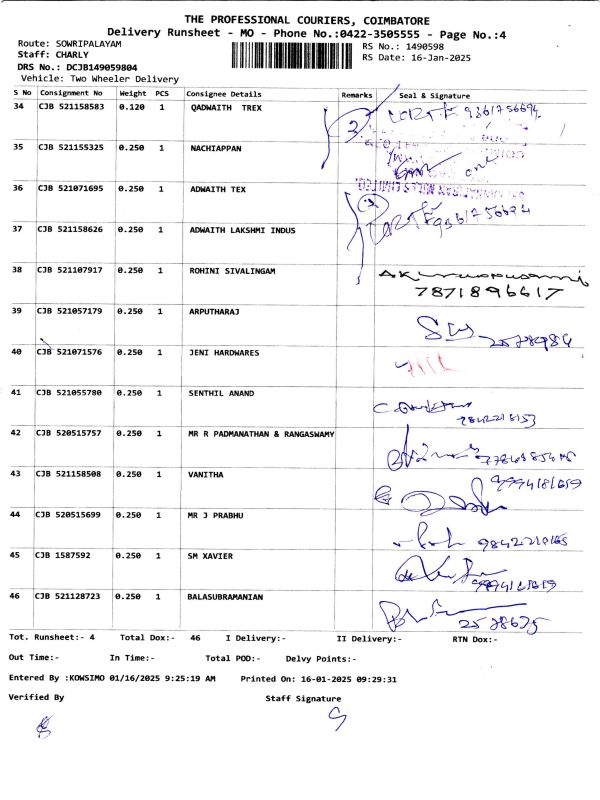 THE PROFESSIONAL COURIERS, COIMBATORE
Delivery Runsheet - MO - Phone No.:0422-3505555 - Page No.:4
Route: SOWRIPALAYAM
RS No.: 1490598
Staff: CHARLY
RS Date: 16-Jan-2025
DRS No.: DCJB149059804
Vehicle: Two Wheeler Delivery
S No Consignment No Weight PCS Consignee Details Remarks Seal & Signature
34 CJB 521158583 0.120 1 QADWAITH TREX 9361756694
35 CJB 521155325 0.250 1 NACHIAPPAN
36 CJB 521071695 0.250 1 ADWAITH TEX
37 CJB 521158626 0.250 1 ADWAITH LAKSHMI INDUS
38 CJB 521107917 0.250 1 ROHINI SIVALINGAM
7871896617
39 CJB 521057179 0.250 1 ARPUTHARAJ
40 CJB 521071576 0.250 1 JENI HARDWARES
41 CJB 521055780 0.250 1 SENTHIL ANAND
42 CJB 520515757 0.250 1 MR R PADMANATHAN & RANGASWAMY
43 CJB 521158508 0.250 1 VANITHA
44 CJB 520515699 0.250 1 MR J PRABHU
45 CJB 1587592 0.250 1 SM XAVIER
46 CJB 521128723 0.250 1 BALASUBRAMANIAN
2578675
Tot. Runsheet:- 4 Total Dox:- 46 I Delivery:- II Delivery:- RTN Dox:-
Out Time:- In Time:- Total POD:- Delvy Points:-
Entered By :KOWSIMO 01/16/2025 9:25:19 AM Printed On: 16-01-2025 09:29:31
Verified By Staff Signature